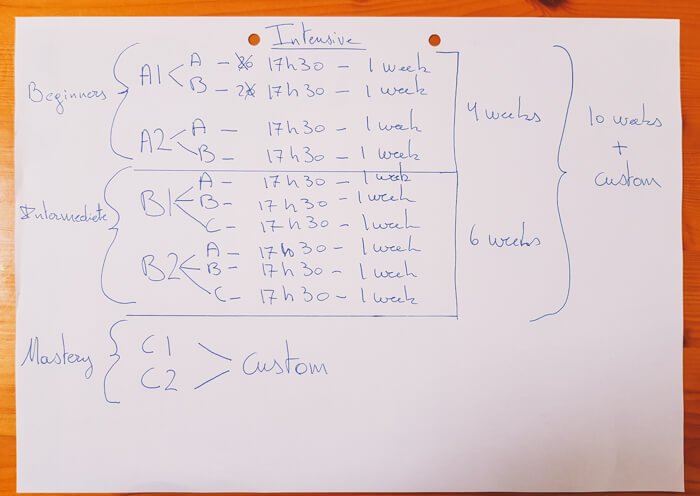 Intensive
Beginners
A1
A - 17h30 - 1 week
B - 17h30 - 1 week
A2
A - 17h30 - 1 week
B - 17h30 - 1 week
4 weeks
10 weeks
+
custom
Intermediate
B1
A - 17h30 - 1 week
B - 17h30 - 1 week
C - 17h30 - 1 week
B2
A - 17h30 - 1 week
B - 17h30 - 1 week
C - 17h30 - 1 week
6 weeks
Mastery
C1
C2
Custom